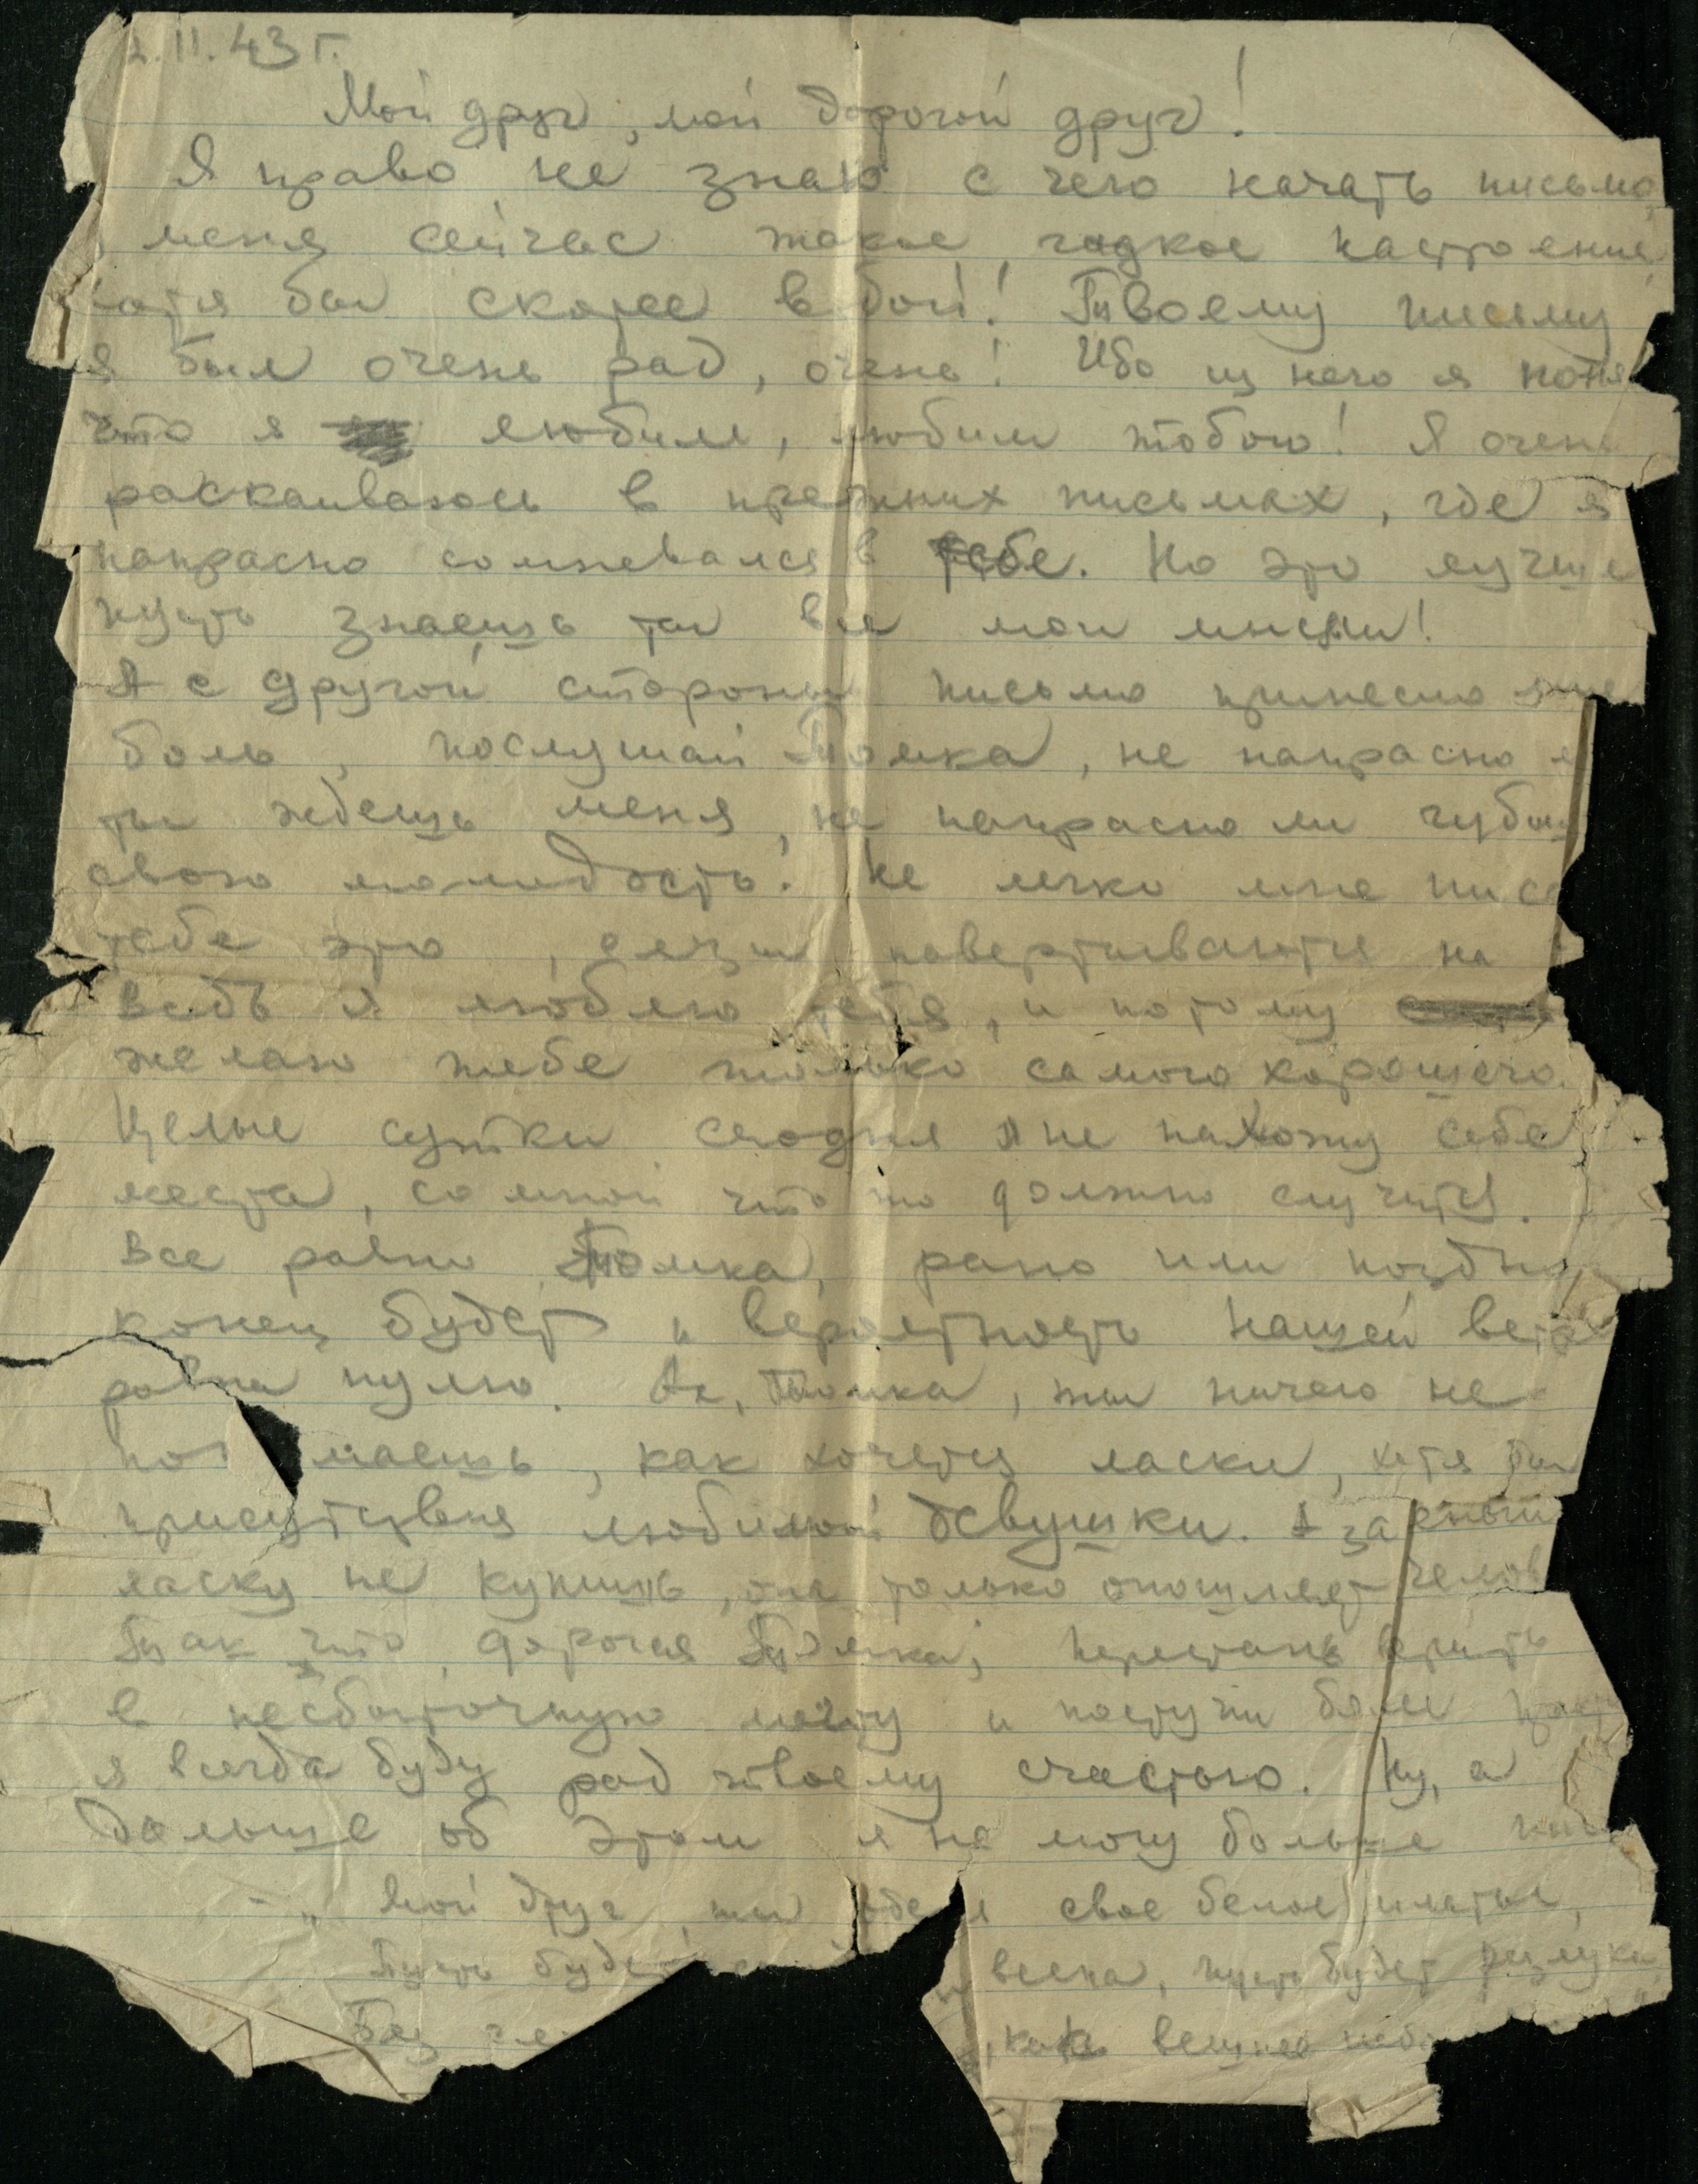 2.II.43 г.
Мой друг, мой дорогой друг!
Я право не знаю с чего начать письмо,
меня сейчас такое гадкое настроение,
хотя бы скорее в бой! Твоему письму
я был очень рад, очень! Ибо из него я поня
что я любим, любим тобою! Я очень
раскаиваюсь в прежних письмах, где я
напрасно сомневался в тебе. Но это лучше
пусть знаешь ты все мои мысли!
А с другой стороны письмо принесло мне
боль, послушай Томка, не напрасно л
ты ждешь меня, не напрасно ли губиш
свою молодость! Не легко мне писа
тебе это, слезы навертываются на
ведь я люблю тебя, и потому
желаю тебе только самого хорошего.
Целые сутки сегодня я не нахожу себе
места, со мной что то должно случится.
Все равно Томка, рано или поздно
конец будет и вероятность нашей вст
равна нулю. Ах, Томка, ты ничего не
по маешь, как хочется ласки, хотя бы
присутствия любимой девушки. А за
ласку не купишь, она только опошляет челов
Так что, дорогая Томка, перестань верить
в несбыточную мечту и поступи
я всегда буду рад твоему счастью. Ну, а
дальше об этом я не могу больше
- „ Мой друг, ты свое белое платье,
Пусть будет весна, пусть будет разлука,
Без как вешнее неб